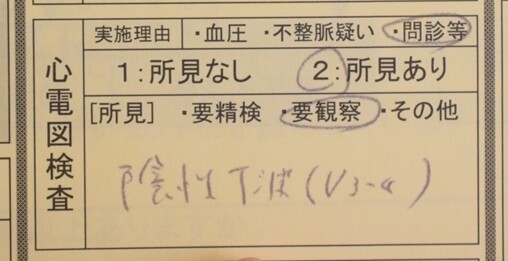 心電図検査
実施理由 ・血圧 ・不整脈疑い ・問診等
1:所見なし 2:所見あり
[所見] ・要精検 ・要観察 ・その他
陰性T波(V3-4)